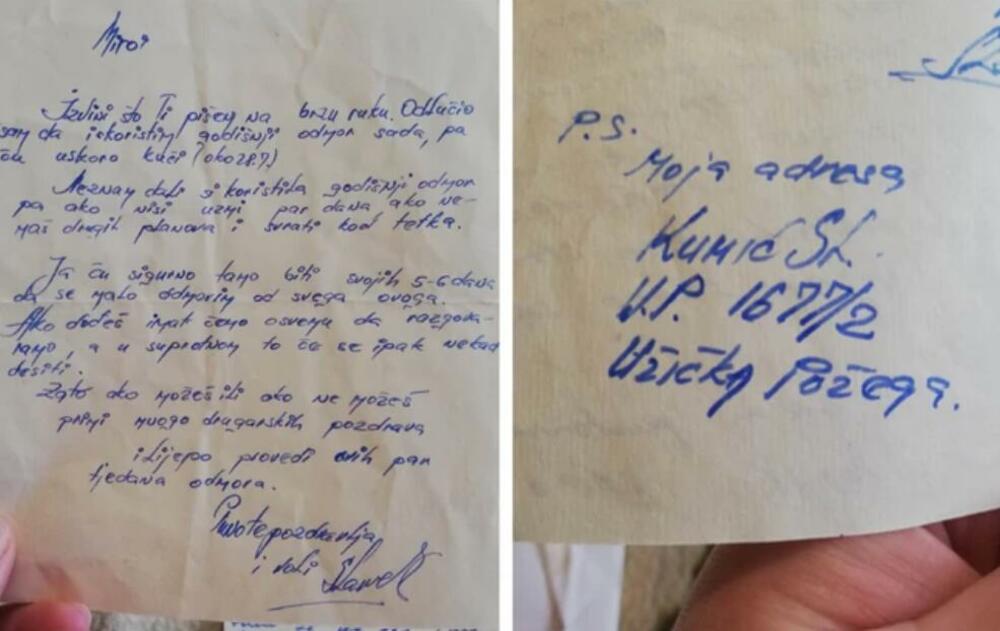 Miroi
Izvini što Ti pišem na brzu ruku. Odlučio
sam da iskoristim godišnji odmor sada, pa
ću uskoro kući (oko 28.7)
Neznam dali si koristila godišnji odmor
pa ako nisi uzmi par dana ako ne-
maš drugih planova i svrati kod tetka.
Ja ću sigurno tamo biti svojih 5-6 dana
da se malo odmorim od svega ovoga.
Ako dođeš imat ćemo osvemu da razgova-
ramo, a u suprotnom to će se ipak nekad
desiti.
Zato ako možeš ili ako ne možeš
primi mnogo drugarskih pozdrava
i lijepo provedi ovih par
tjedana odmora.
Puno te pozdravlja
i voli
P.S.
Moja adresa
Kumić Sl.
V.P. 1677/2
Užička Požega.